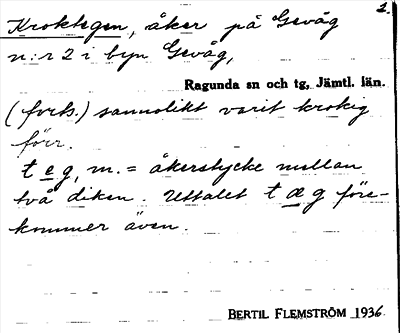 2.
Kroktegen, åker på Gevåg
n:r 2 i byn Gevåg,
Ragunda sn och tg, Jämtl. län.
(forts.) sannolikt varit krokig
förr.
teg, m. = åkerstycke mellan
två diken. Uttalet tæg före-
kommer även.
BERTIL FLEMSTRÖM 1936.